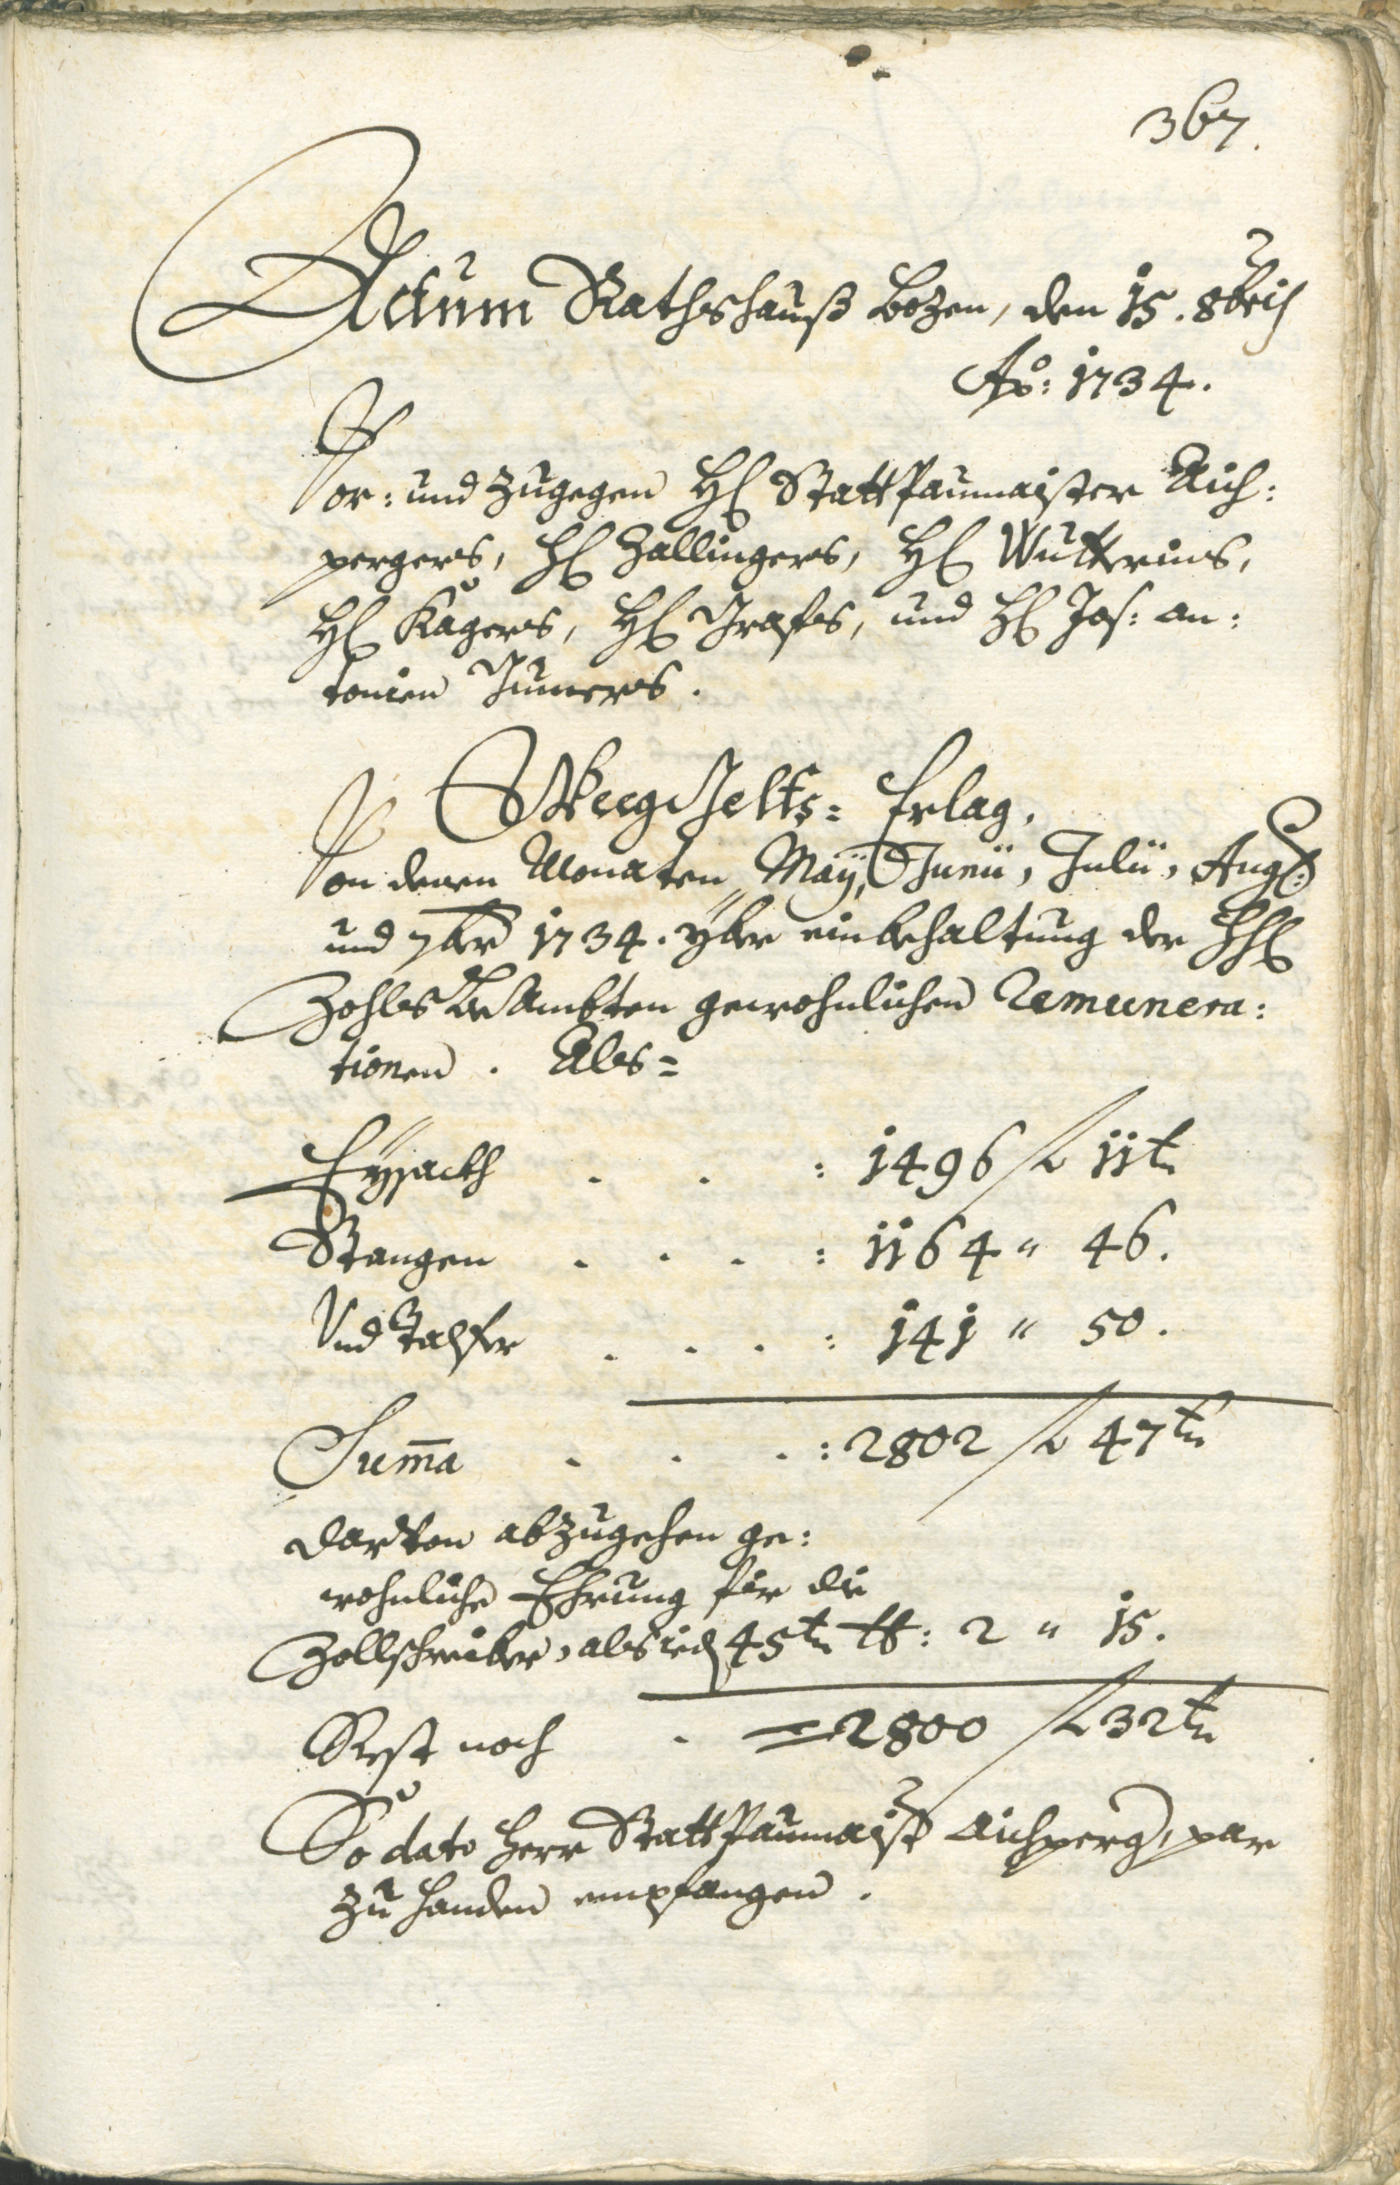 367.
Actum Rathshauß Bozen, den 15. 8bris
Ao: 1734.
Vor: und zugegen H. Statt Paumaister Aich:
pergers, H. Zallingers, H. Mutterins,
H. Kagers, H. Grafes, und H. Jos: an:
tonien Gumers.
Weeg Gelts= Erlag.
Von denen Monaten May, Junii, Julii, Aug:
und 7ber 1734. yber einbehaltung der HH.
Zohls Beambten gewohnlichen Remunera:
tionen. Als=
Eysackh . . : 1496 f 11 kr
Stangen . . . : 1164 " 46.
Und Talfer . . . : 141 " 50.
Suma̅ . . . : 2802 f 47 kr
darvon abzugehen ge:
wohnliche Ehrung für die
Zollschreiber, als ied. 45 kr tt: 2 " 15.
Rest noch . = 2800 f 32 kr
So dato Herr Statt Paumaist. Aichperg. par
zu handen empfangen.